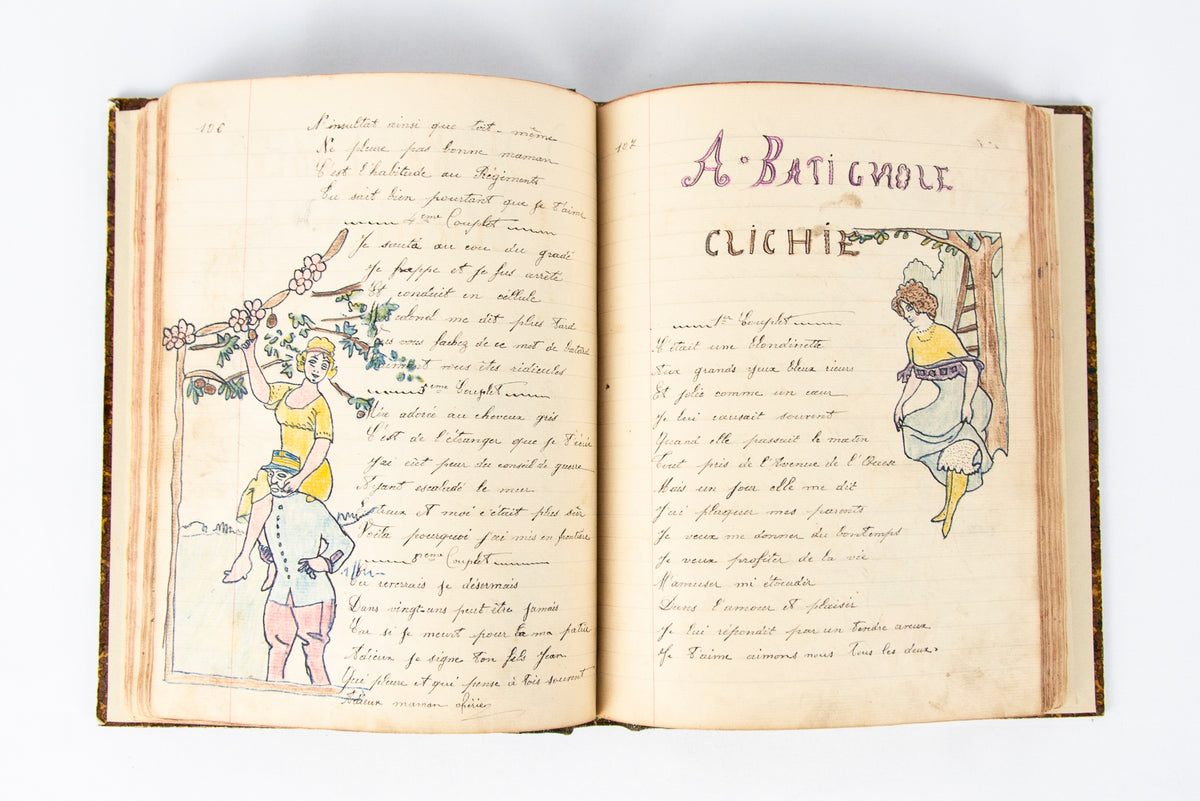 106
N'insultat ainsi que toit-même
Ne pleure pas bonne maman
C'est l'habitude au Régiments
Tu sait bien pourtant que je t'aime
4eme Couplet
Je sauta au cou du gradé
Je frappe et je fus arrêté
Et conduit en cellule
colonel me dit plus tard
vous fachez de ce mot de batard
vraiment vous êtes ridicules
5eme Couplet
adorée au cheveux gris
C'est de l'étranger que je t'écrie
J'ai eût peur du conseil de guerre
Ayant escaladé le mur
et moi c'était plus sûr
Voila pourquoi j'ai mis en frontière
eme Couplet
Te reverrais je désormais
Dans vingt-ans peut être jamais
Car si je meurt pour la ma patrie
Adieux je signe ton fils Jean
Qui pleure et qui pense à tois souvent
Adieux maman chérie
107
A. BATIGNOLE
CLICHIE
1er Couplet
C'était une blondinette
Aux grands yeux bleux rieurs
Et jolie comme un cœur
Je lui causait souvent
Quand elle passait le matin
Tout près de l'Avenue de l'Ouest
Mais un jour elle me dit
J'ai plaquer mes parents
Je veux me donner du bontemps
Je veux profiter de la vie
M'amuser mi étoudir
Dans l'amour et plaisir
Je lui répondit par un tendre aveux
Je t'aime aimons nous tous les deux.